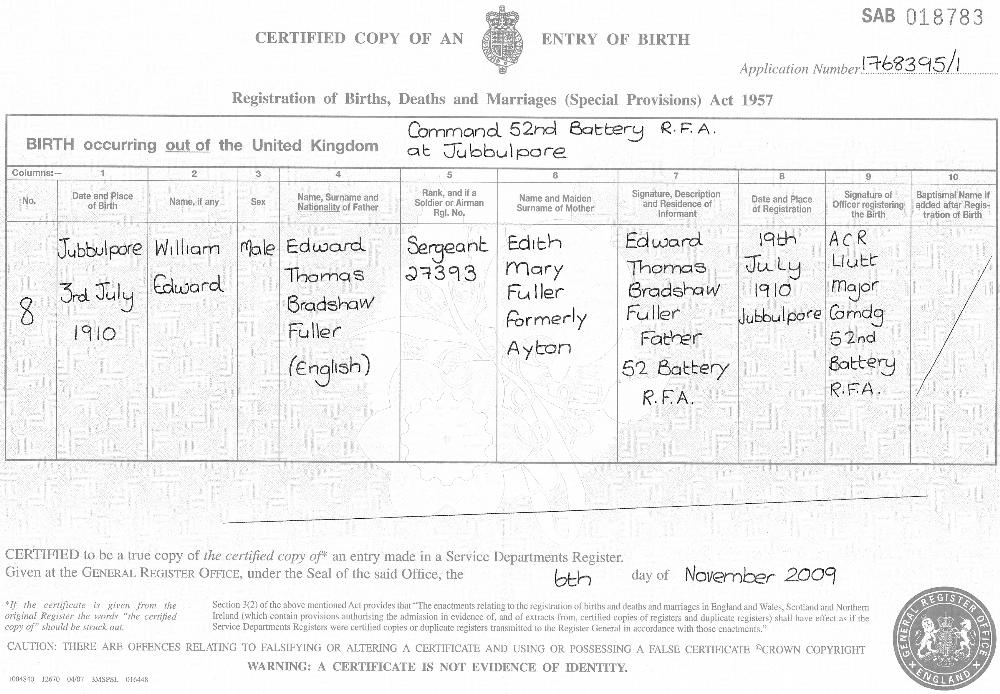 SAB 018783
CERTIFIED COPY OF AN ENTRY OF BIRTH
Application Number 1768395/1
Registration of Births, Deaths and Marriages (Special Provisions) Act 1957
BIRTH occurring out of the United Kingdom
Command 52nd Battery R.F.A.
at Jubbulpore
Columns:— 1 2 3 4 5 6 7 8 9 10
No.
Date and Place
of Birth
Name, if any
Sex
Name, Surname and
Nationality of Father
Rank, and if a
Soldier or Airman
Rgl. No.
Name and Maiden
Surname of Mother
Signature, Description
and Residence of
Informant
Date and Place
of Registration
Signature of
Officer registering
the Birth
Baptismal Name if
added after Regis-
tration of Birth
8
Jubbulpore
3rd July
1910
William
Edward
Male
Edward
Thomas
Bradshaw
Fuller
(English)
Sergeant
27393
Edith
Mary
Fuller
formerly
Ayton
Edward
Thomas
Bradshaw
Fuller
Father
52 Battery
R.F.A.
19th
July
1910
Jubbulpore
ACR
Llutt
Major
Comdg
52nd
Battery
R.F.A.
CERTIFIED to be a true copy of the certified copy of* an entry made in a Service Departments Register.
Given at the GENERAL REGISTER OFFICE, under the Seal of the said Office, the 6th day of November 2009
*If the certificate is given from the
original Register the words "the certified
copy of" should be struck out.
Section 3(2) of the above mentioned Act provides that "The enactments relating to the registration of births and deaths and marriages in England and Wales, Scotland and Northern
Ireland (which contain provisions authorising the admission in evidence of, and of extracts from, certified copies of registers and duplicate registers) shall have effect as if the
Service Departments Registers were certified copies or duplicate registers transmitted to the Register General in accordance with those enactments."
CAUTION: THERE ARE OFFENCES RELATING TO FALSIFYING OR ALTERING A CERTIFICATE AND USING OR POSSESSING A FALSE CERTIFICATE ©CROWN COPYRIGHT
WARNING: A CERTIFICATE IS NOT EVIDENCE OF IDENTITY.
04/07 016448
GENERAL REGISTER OFFICE
ENGLAND